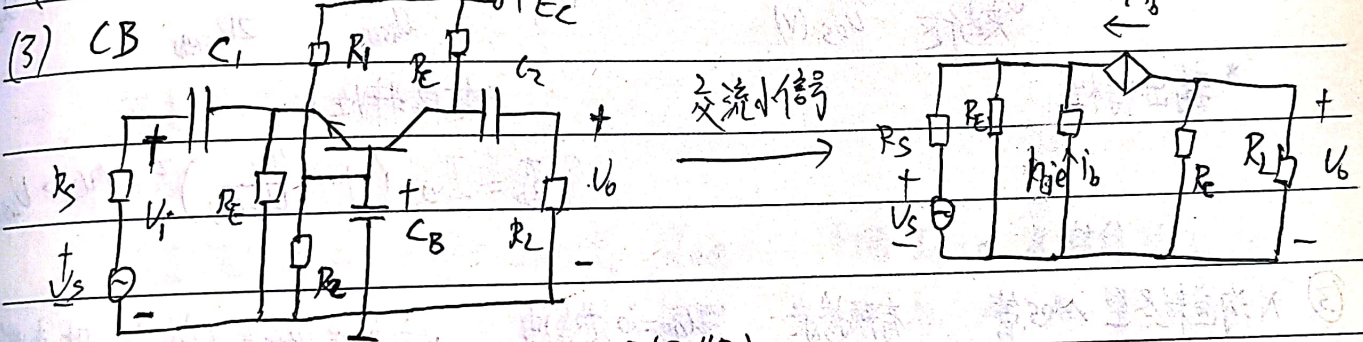 (3) CB
C1
R1
RC
C2
+EC
RS
+
Vi
RE
R2
+
CB
RL
+
Vo
-
+
Vs
-
交流小信号
ib
RS
+
Vs
-
RE
hie
ib
RC
RL
+
Vo
-